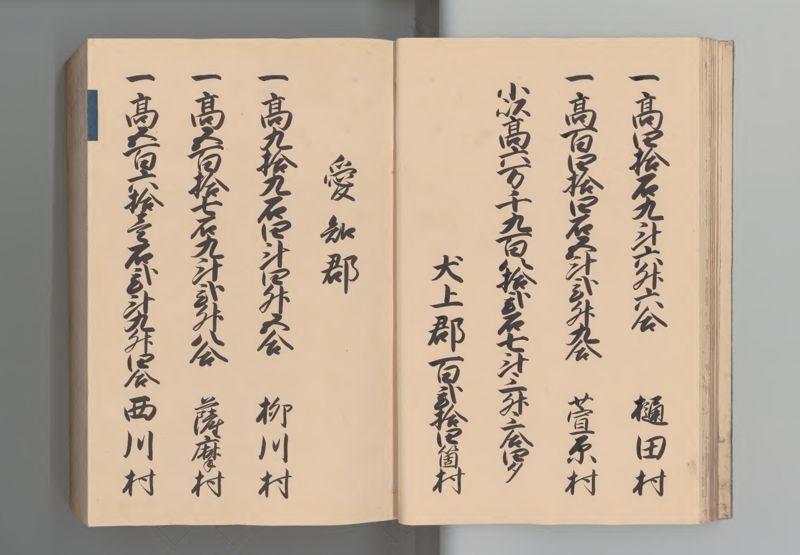 一高四拾石九斗六升六合 樋田村
一高百四拾四石五斗弐升九合 萱原村
小以高六万千九百八拾弐石七斗三升三合四夕
犬上郡百弐拾四箇村
愛知郡
一高九拾九石四斗四升五合 柳川村
一高五百拾七石九斗弐升八合 薩摩村
一高五百六拾壱石弐斗九升四合 西川村